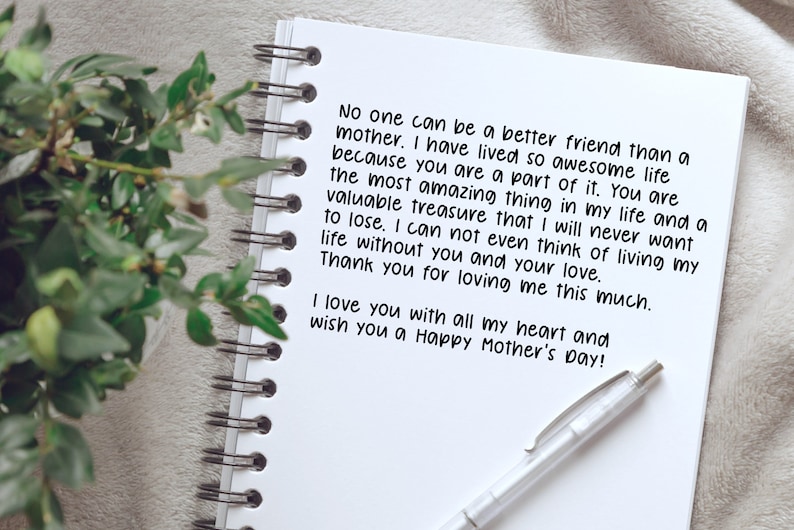 No one can be a better friend than a
mother. I have lived so awesome life
because you are a part of it. You are
the most amazing thing in my life and a
valuable treasure that I will never want
to lose. I can not even think of living my
life without you and your love.
Thank you for loving me this much.
I love you with all my heart and
wish you a Happy Mother's Day!